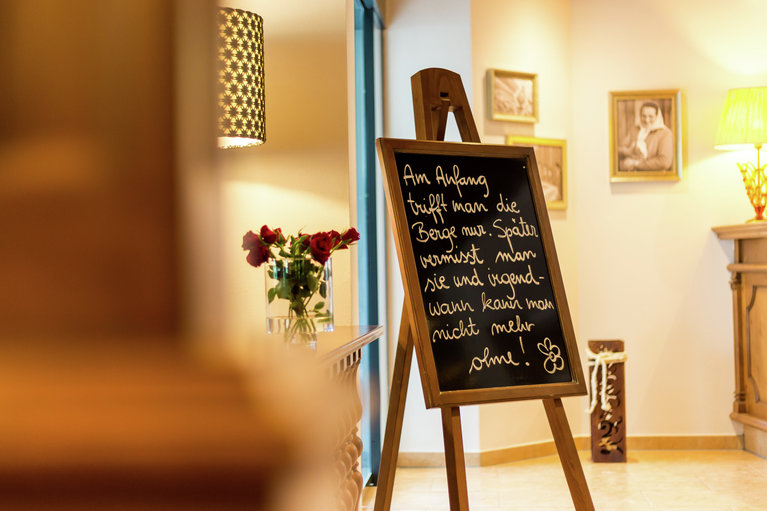 Am Anfang
trifft man die
Berge nur. Später
vermisst man
sie und irgend-
wann kann man
nicht mehr
ohne!